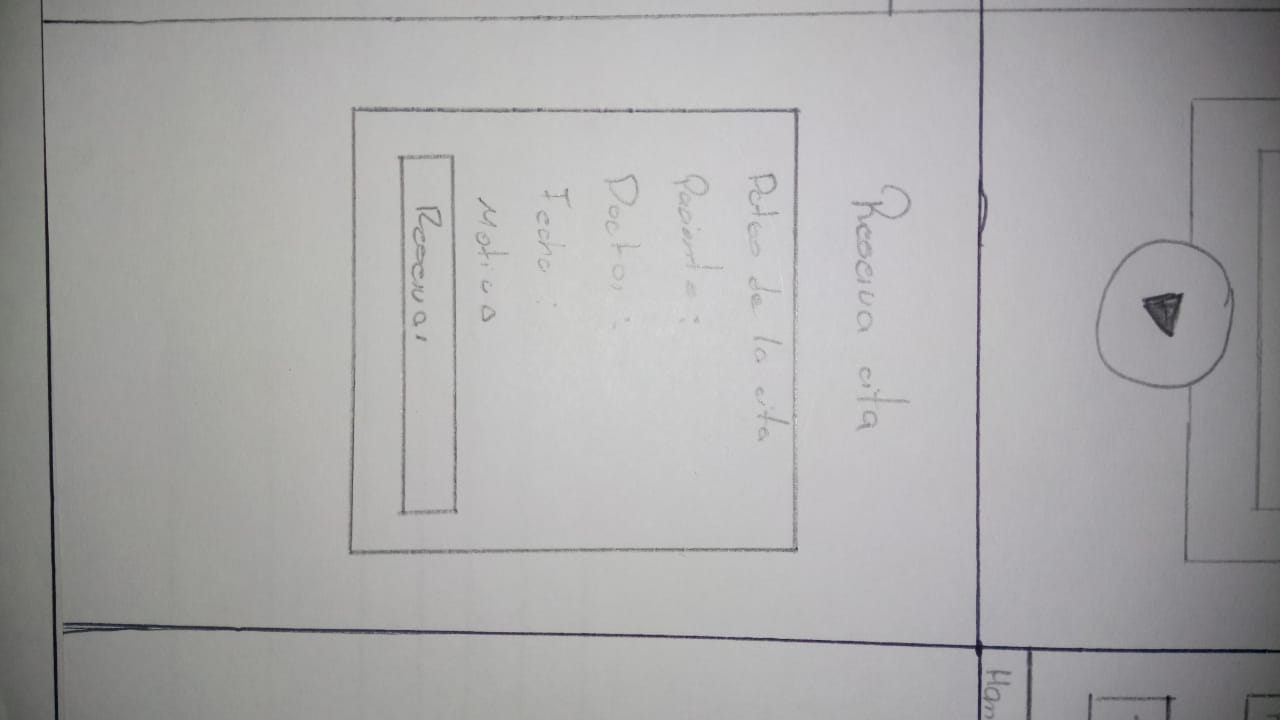 Rescciva cita
Datos de la cita
Paciente:
Doctor:
Fecha:
Motivo
Rescrvar
Ham